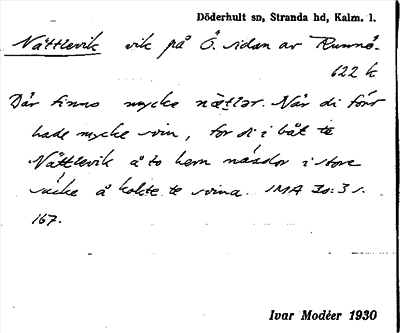 Döderhult sn, Stranda hd, Kalm. l.
Nättlevik vik på Ö. sidan av Runnö.
622 k
Där finns mycke nättlar. När di förr
hade mycke svin, for di i båt te
Nättlevik å to hem nässlor i store
säcke å kokte te svina. IMA 20:3 s.
167.
Ivar Modéer 1930